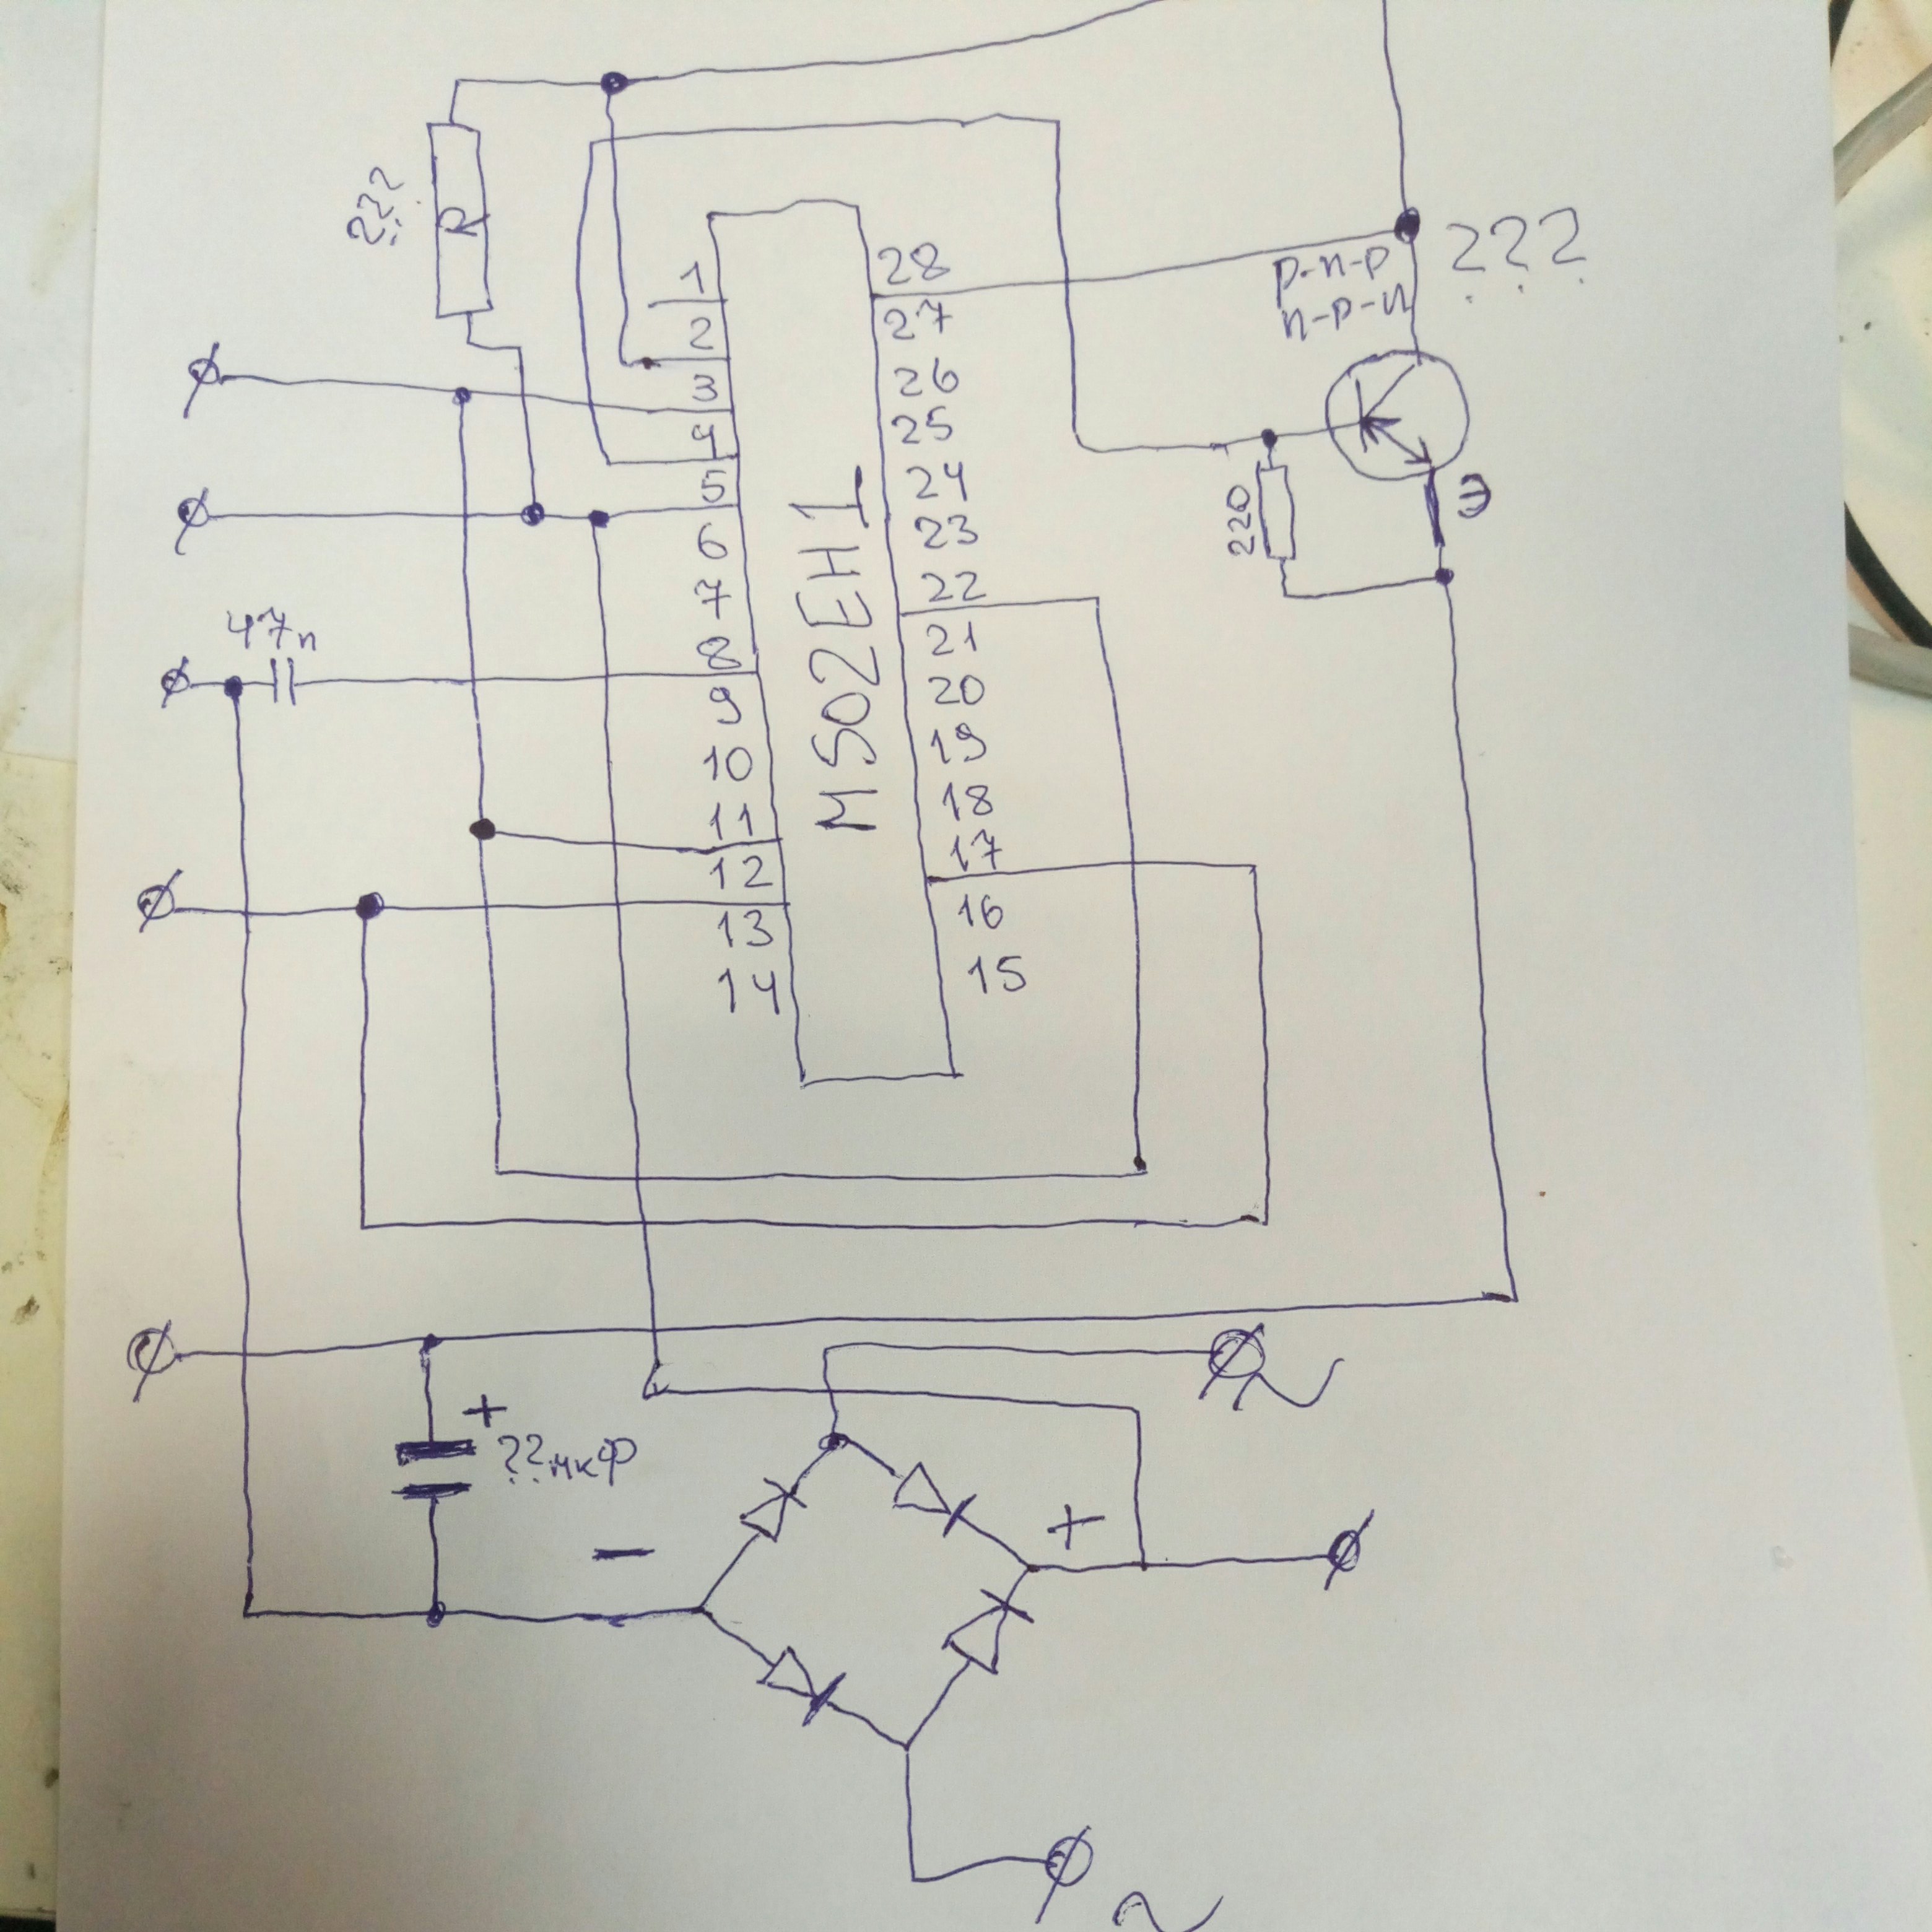 ???
R
1
2
3
4
5
6
7
8
9
10
11
12
13
14
MS02EH1
28
27
26
25
24
23
22
21
20
19
18
17
16
15
p-n-p
n-p-n
???
Э
220
47n
+
??мкф
−
+
~
~